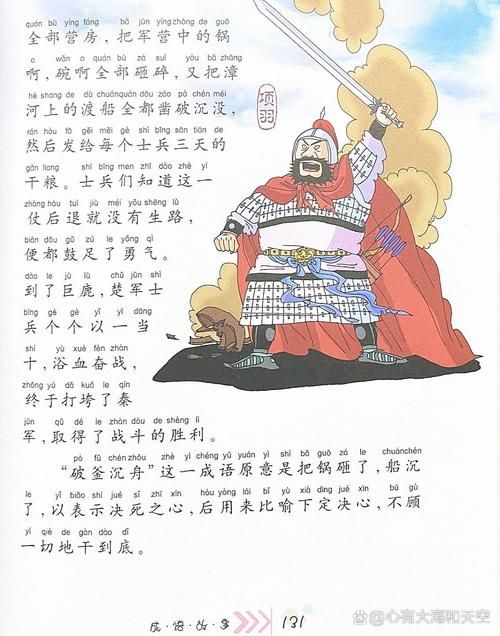 quán bù yíng fáng bǎ jūn yíngzhōng de guō
全部营房，把军营中的锅
a wǎn a quán bù zá suì yòu bǎ zhāng
啊，碗啊全部砸碎，又把漳
hé shang de dù chuánquán dōu záo pò chén méi
河上的渡船全都凿破沉没，
rán hòu fā gěi měi gè shì bīng sān tiān de
然后发给每个士兵三天的
gān liang shì bīng men zhī dào zhè yí
干粮。士兵们知道这一
zhàng hòu tuì jiù méi yǒu shēng lù
仗后退就没有生路，
biàn dōu gǔ zú le yǒng qì
便都鼓足了勇气。
dào le jù lù chǔ jūn shì
到了巨鹿，楚军士
bīng gè gè yǐ yī dāng
兵个个以一当
shí yù xuè fèn zhàn
十，浴血奋战，
zhōng yú dǎ kuǎ le qín
终于打垮了秦
jūn qǔ dé le zhàn dòu de shèng lì
军，取得了战斗的胜利。
pò fǔ chén zhōu zhè yì chéng yǔ yuán yì shì bǎ guō zá le chuánchén
“破釜沉舟”这一成语原意是把锅砸了，船沉
le yǐ biǎo shì jué sǐ zhī xīn hòu yòng lái bǐ yù xià dìng jué xīn bú gù
了，以表示决死之心，后用来比喻下定决心，不顾
yí qiè de gàn dào dǐ
一切地干到底。
项羽
成·语·故·事 131
@心有大海和天空